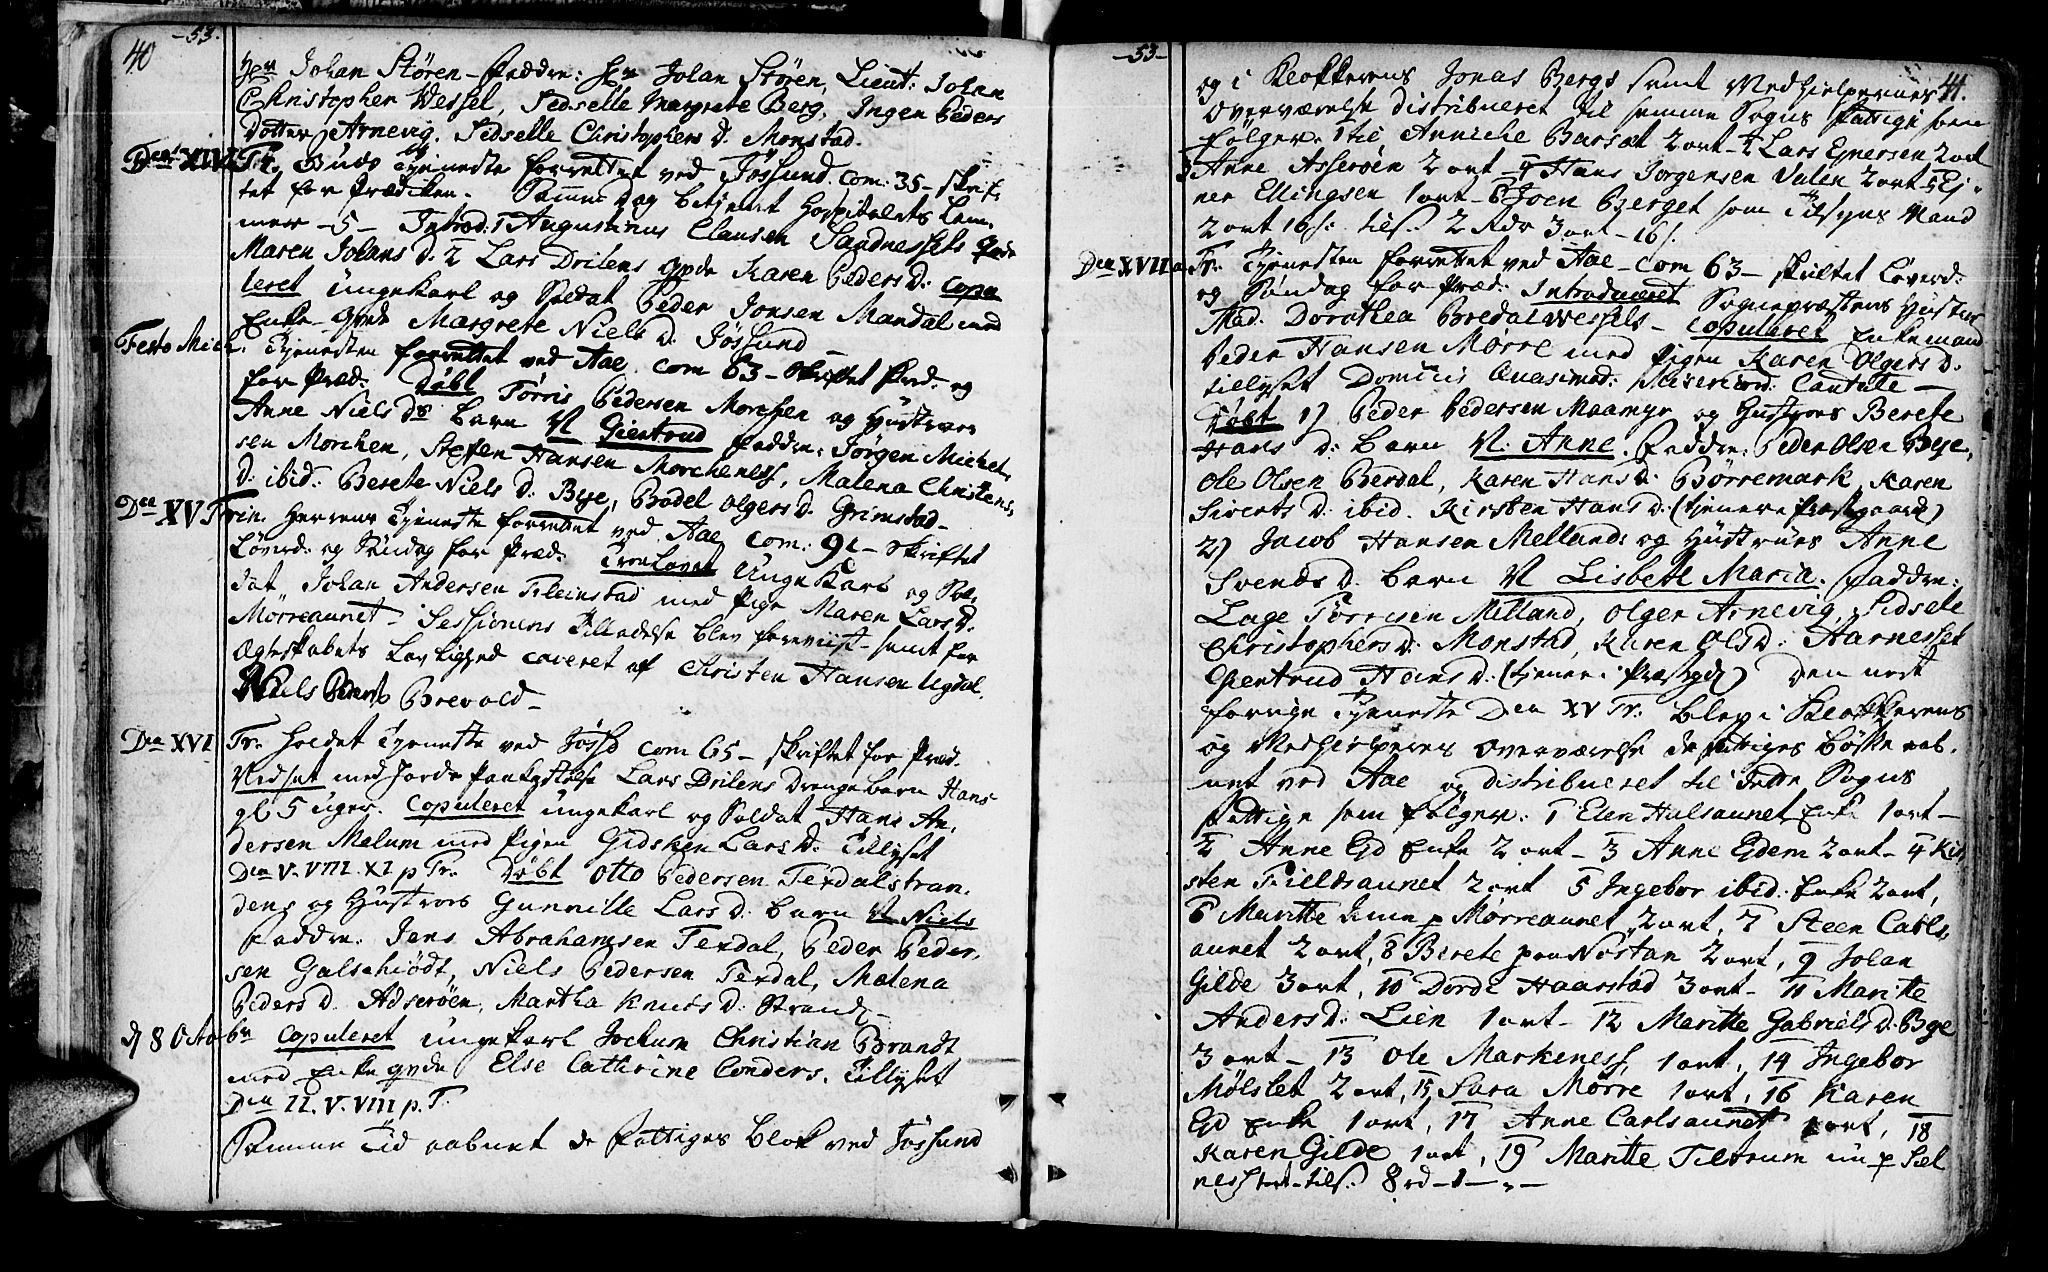 40 -53-
Hrn Johan Stören - Faddre: Hr Johan Stören, Lieut: Johan
Christopher Wessel, Sedselle Margrete Berg, Ingen Peders
Dotter Arnevig, Sedselle Christophers D. Monstad.
Den XIV Tr. Guds Tjeneste forrettet ved Jössund. com: 35 - skrif-
tet for Prædiken. Samme Dag betjent Hospitalets Lem-
mer - 5 - Introd: 1 Augustinus Clausen Sandnessets
Maren Johans D. 2 Lars Drilens qvde Karen Peders D: Copu
leret ungekarl og Soldat Peder Jonsen Mandal med
Enke - qvde Margrete Niels D. Jössund
Festo Mich. Tjenesten forrettet ved Aae. com 63 - skriftet
for Præd. Döbt Törris Pedersen Morchen og Hustroes
Anne Niels Ds barn N Giertrud Faddre: Jörgen Michel
sen Morchen, Steffen Hansen Morcheness, Malena Christens
D: ibid: Berete Niels D: Bye, Bodel Olgers D. Grimstad -
Den XV Trin. Herrens Tjeneste forrettet ved Aae com: 91 - skriftet
Löverd: og Söndag for Præd. Trolovet Unge Karl og Sol-
dat Johan Andersen Fleinstad med Pige Maren Lars D.
Mörreaunet - Sessionens Tilladelse blev foreviist - samt for
Ægteskabets Lovlighed caveret af Christen Hansen Ugdal.
Niels Peders Brevold -
Den XVI Tr. holdet Tjeneste ved Jössd com 65 - skriftet for Præd.
Vedset med Jords Paakastelse Lars Drilens Drengebarn Hans
gl 5 uger. Copuleret ungekarl og Soldat Hans An-
dersen Melum med Pigen Gidsken Lars D: Tillyset
Den V. VIII. XI p Tr. Döbt Otto Pedersen Terdalstran-
dens og Hustroes Gunnille Lars D: barn N Niels
Faddre: Jens Abrahamsen Terdal, Peder Peder-
sen Galschiödt, Niels Pedersen Terdal, Malena
Peders D. Adseröen, Martha Knuds D: Strand -
d 8 Octobr Copuleret ungekarl Jochum Christian Brandt
med Enke qvde Else Cathrine Conders. Tillyset
Den II. V. VIII p. T.
Samme Tid aabnet de fattiges Blok ved Jössund
-53- 41.
og i Klokkerens Jonas Bergs samt Medhielpernes
Overværelse distribueret til samme Sogns fattige som
fölger. 1 til Anniche Barsæt 2 ort - 2 Lars Ejnersen 2 ort
3 Anne Asseröen 2 ort - 4 Hans Jörgensen Valen 2 ort - 5 Ej-
ner Ellingsen 1 ort - 6 Joen Berget som Tilsyns Mand
2 ort 16 s: tils. 2 Rdr 3 ort - 16 s.
Den XVII Tr. Tjenesten forrettet ved Aae - com 63 - skriftet Löverd:
og Söndag for Præd: Introduceret Sognepræstens Hustru
Mad. Dorothea Bredal Wessels - Copuleret Enkemand
Peder Hansen Mörre med Pigen Karen Olgers D.
tillyset Dominis Quasimod: Misericord: Cantate -
Döbt 1) Peder Pedersen Maamyr og Hustroes Berete
Hans D: barn N: Anne. Faddre: Peder Olsen Bye,
Ole Olsen Berdal, Karen Hans D: Börremark, Karen
Siverts D: ibid. Kirsten Hans D: (tjener i Præstgaard)
2) Jacob Hansen Mellands og Hustrues Anne
Svends D. barn N Lisbeth Maria. Faddre:
Lage Törresen Milland, Olger Arnevig, Sidsele
Christophers D: Monstad, Karen Ols D: Aarnesset
Giertrud Hans D: (tjener i Præstgd) Den nest
forrige Tjeneste Den XV Tr: blev i Klokkerens
og Medhielperes Overværelse de fattiges Bösse aab-
net ved Aae og distribueret til dette Sogns
fattige som fölger. 1 Elen Halsaunet Enke 1 ort -
2 Anne Eid Enke 2 ort - 3 Anne Eidem 2 ort - 4 Kir-
sten Fieldsaunet 2 ort 5 Ingebor ibid: Enke 2 ort,
6 Maritte p Mörreaunet 2 ort, 7 Steen Carls-
aunet 2 ort, 8 Berete paa Nostan 2 ort, 9 Johan
Gilde 3 ort, 10 Dordi Haarstad 3 ort - 11 Maritte
Anders D: Lien 1 ort - 12 Maritte Gabriels D: Bye
3 ort - 13 Ole Markeness, 1 ort, 14 Ingebor
Mölslet 2 ort, 15 Sara Mörre 1 ort, 16 Karen
Eid Enke 1 ort, 17 Anne Carlsaunet 1 ort, 18
Karen Gilde 1 ort, 19 Maritte Tiltrum nu p Sel
ness 1 ort - tils: 8 rd - 1 - " -